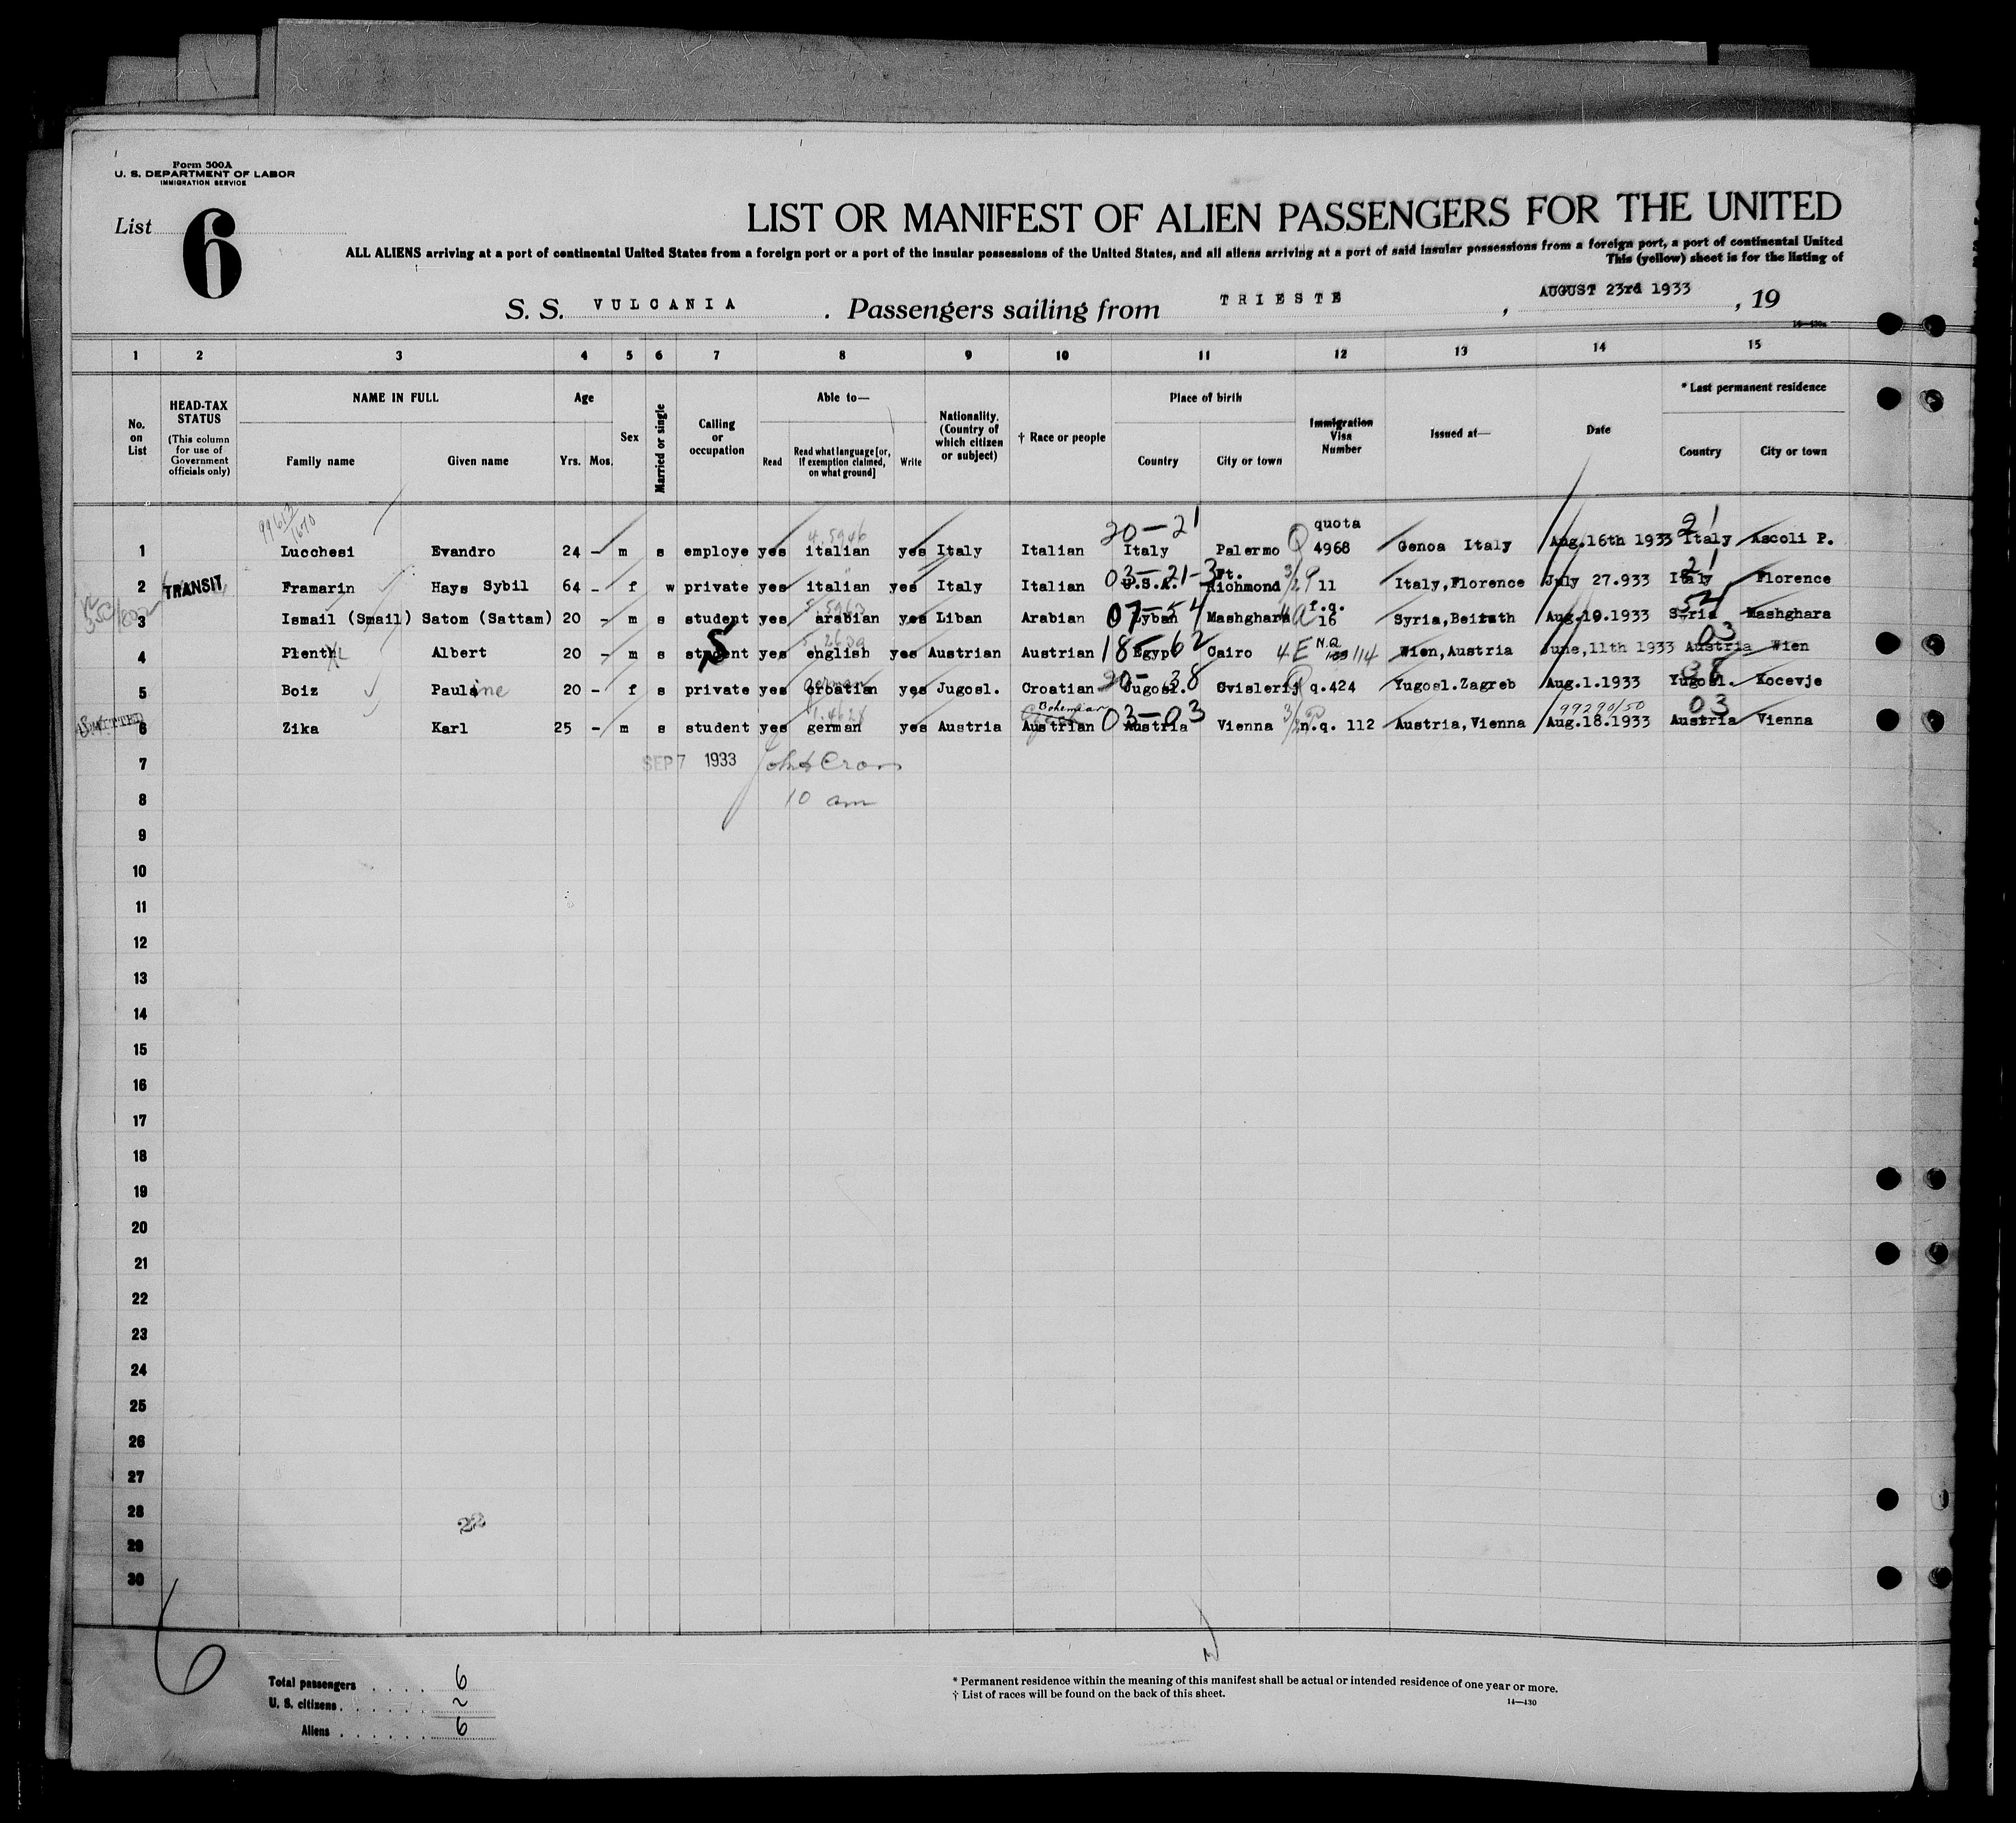 Form 500A
U. S. DEPARTMENT OF LABOR
IMMIGRATION SERVICE
List 6
LIST OR MANIFEST OF ALIEN PASSENGERS FOR THE UNITED
ALL ALIENS arriving at a port of continental United States from a foreign port or a port of the insular possessions of the United States, and all aliens arriving at a port of said insular possessions from a foreign port, a port of continental United
This (yellow) sheet is for the listing of
S. S. VULCANIA . Passengers sailing from TRIESTE , AUGUST 23rd 1933 , 19
14—430a
1 2 3 4 5 6 7 8 9 10 11 12 13 14 15
No. on List
HEAD-TAX STATUS
(This column for use of Government officials only)
NAME IN FULL
Family name Given name
Age
Yrs. Mos.
Sex
Married or single
Calling or occupation
Able to—
Read Read what language [or, if exemption claimed, on what ground] Write
Nationality. (Country of which citizen or subject)
† Race or people
Place of birth
Country City or town
Immigration Visa Number
Issued at—
Date
* Last permanent residence
Country City or town
99613/1670
4.5946 20-21 quota 21
1 Lucchesi Evandro 24 - m s employe yes italian yes Italy Italian Italy Palermo Q 4968 Genoa Italy Aug.16th 1933 Italy Ascoli P.
03-21-3 21
2 TRANSIT Framarin Hays Sybil 64 - f w private yes italian yes Italy Italian U.S.A. Richmond 11 Italy, Florence July 27.933 Italy Florence
07-54 54
3 Ismail (Smail) Satom (Sattam) 20 - m s student yes arabian yes Liban Arabian Lyban Mashghara 16 Syria, Beiruth Aug.10.1933 Syria Mashghara
S 18-62 N.Q. 03
4 Plenth Albert 20 - m s student yes english yes Austrian Austrian Egyp Cairo 4E 114 Wien, Austria June, 11th 1933 Austria Wien
german 20-38 38
5 Boiz Pauline 20 - f s private yes croatian yes Jugosl. Croatian Jugosl. q.424 Yugosl. Zagreb Aug.1.1933 Yugosl. Kocevje
Bohemian 03-03 99290/50 03
6 ADMITTED Zika Karl 25 - m s student yes german yes Austria Austrian Austria Vienna n.q. 112 Austria, Vienna Aug.18.1933 Austria Vienna
7 SEP 7 1933
8 10 am
9
10
11
12
13
14
15
16
17
18
19
20
21
22
23
24
25
26
27
28
29
30
22
6
Total passengers . . . . 6
U. S. citizens . . . . . .
Aliens . . . . . . 6
* Permanent residence within the meaning of this manifest shall be actual or intended residence of one year or more.
† List of races will be found on the back of this sheet.
14—430